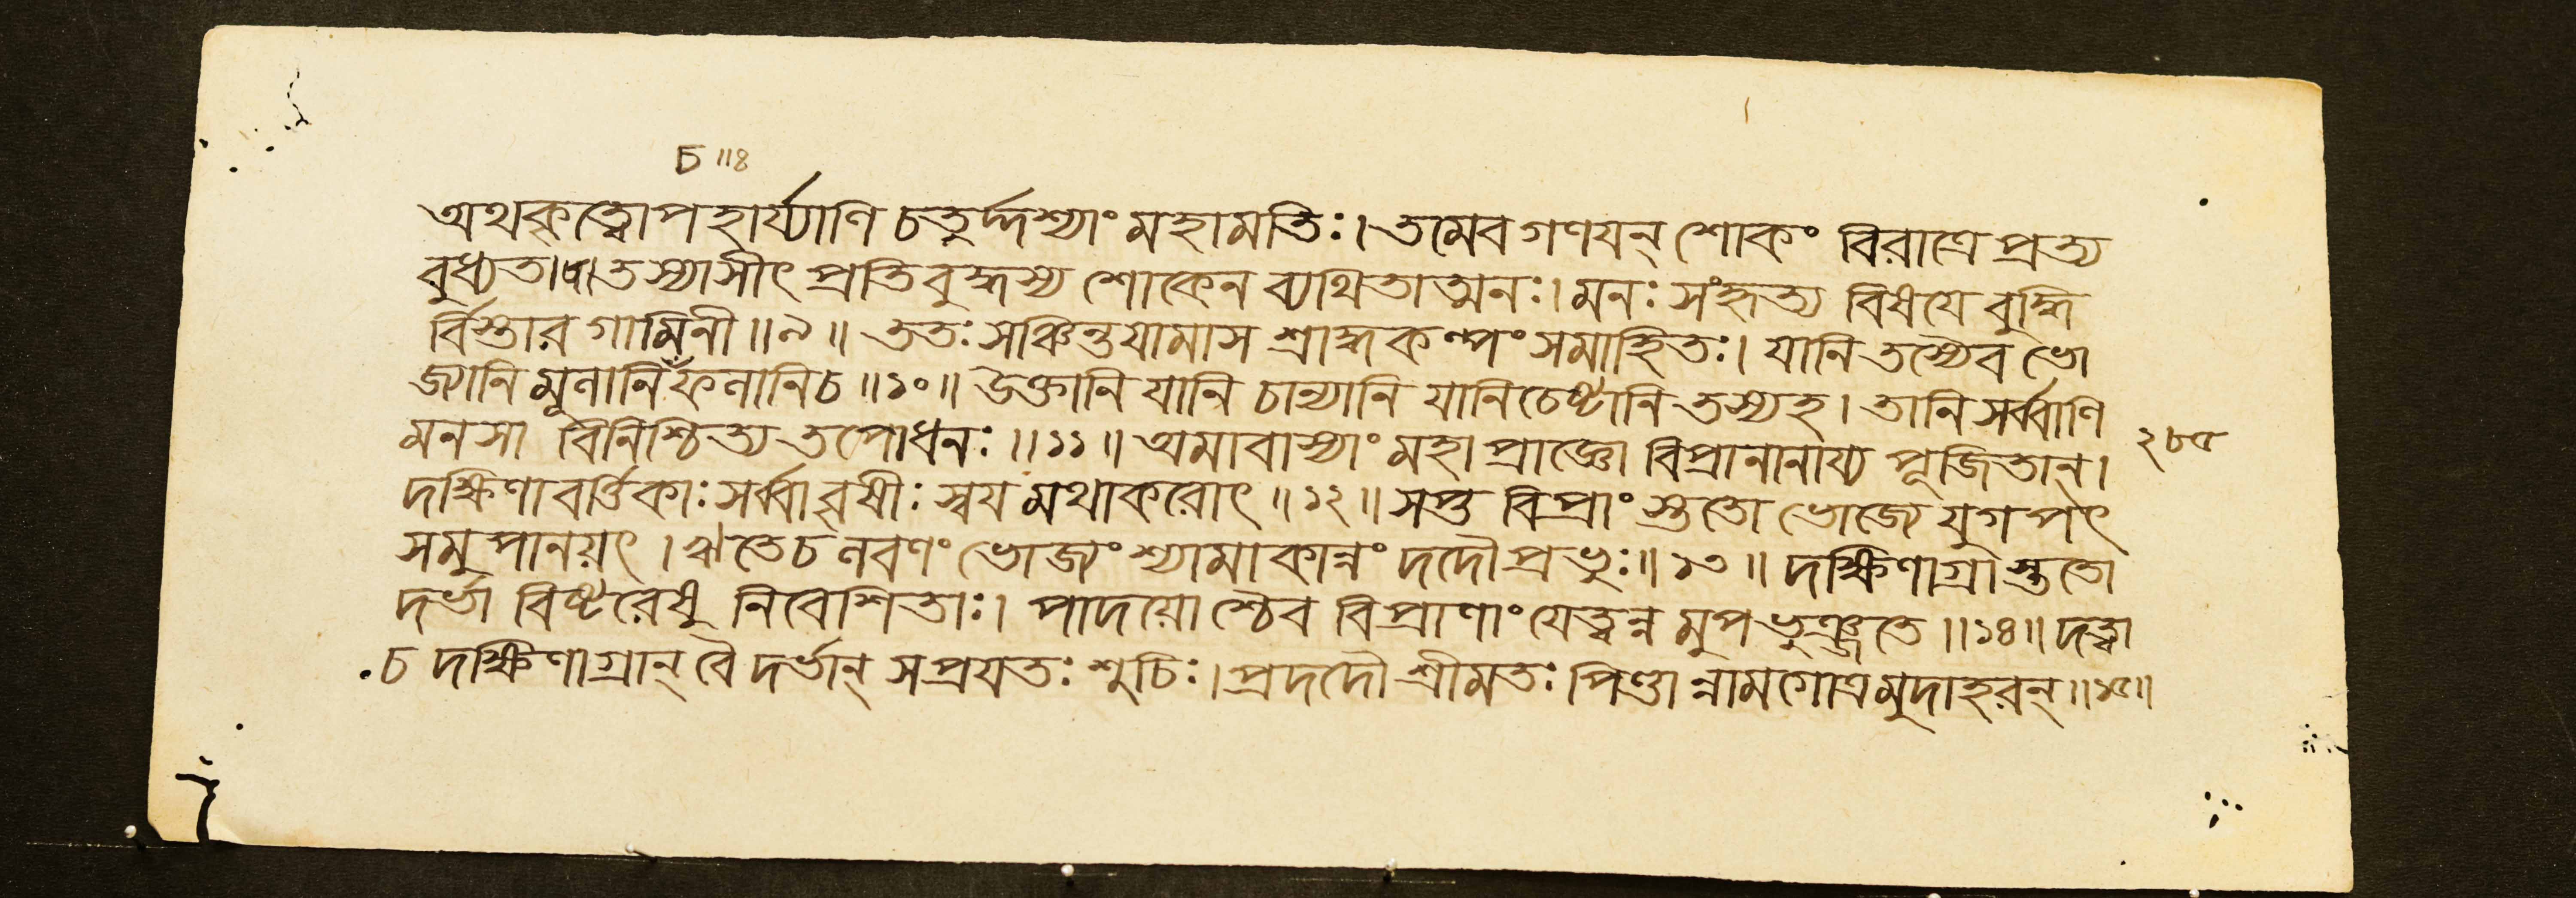 চ ॥৪
অথকৃত্বোপহার্য্যাণি চতুর্দ্দশ্যাং মহামতিঃ। তমেব গণযন্ শোকং বিরাত্রে প্রত্য
বুধ্যত॥৮॥ তস্যাসীৎ প্রতিবুদ্ধস্য শোকেন ব্যথিতাত্মনঃ। মনঃ সংহৃত্য বিষযে বুদ্ধি
র্বিস্তার গামিনী॥৯॥ ততঃ সঞ্চিন্তযামাস শ্রাদ্ধকল্পং সমাহিতঃ। যানি তস্যৈব ভো
জ্যানি মূলানি ফলানিচ॥১০॥ উক্তানি যানি চান্যানি যানিচেষ্টানি তস্যহ। তানি সর্ব্বাণি
মনসা বিনিশ্চিত্য তপোধনঃ॥১১॥ অমাবাস্যাং মহাপ্রাজ্ঞো বিপ্রানানায্য পূজিতান্।
২৮৫
দক্ষিণাবর্ত্তিকাঃ সর্ব্বা বৃষীঃ স্বযমথাকরোৎ॥১২॥ সপ্ত বিপ্রাংস্ততো ভোজ্যে যুগপৎ
সমুপানয়ৎ। ঋতেচ লবণং ভোজ্যং শ্যামাকান্নং দদৌ প্রভুঃ॥১৩॥ দক্ষিণাগ্রাস্ততো
দর্ভা বিষ্টরেষু নিবেশিতাঃ। পাদয়োশ্চৈব বিপ্রাণাং যেত্বন্নমুপভুঞ্জতে॥১৪॥ দত্ত্বা
চ দক্ষিণাগ্রান্ বৈ দর্ভান্ সপ্রযতঃ শুচিঃ। প্রদদৌ শ্রীমতঃ পিণ্ডান্নামগোত্রমুদাহরন্॥১৫॥